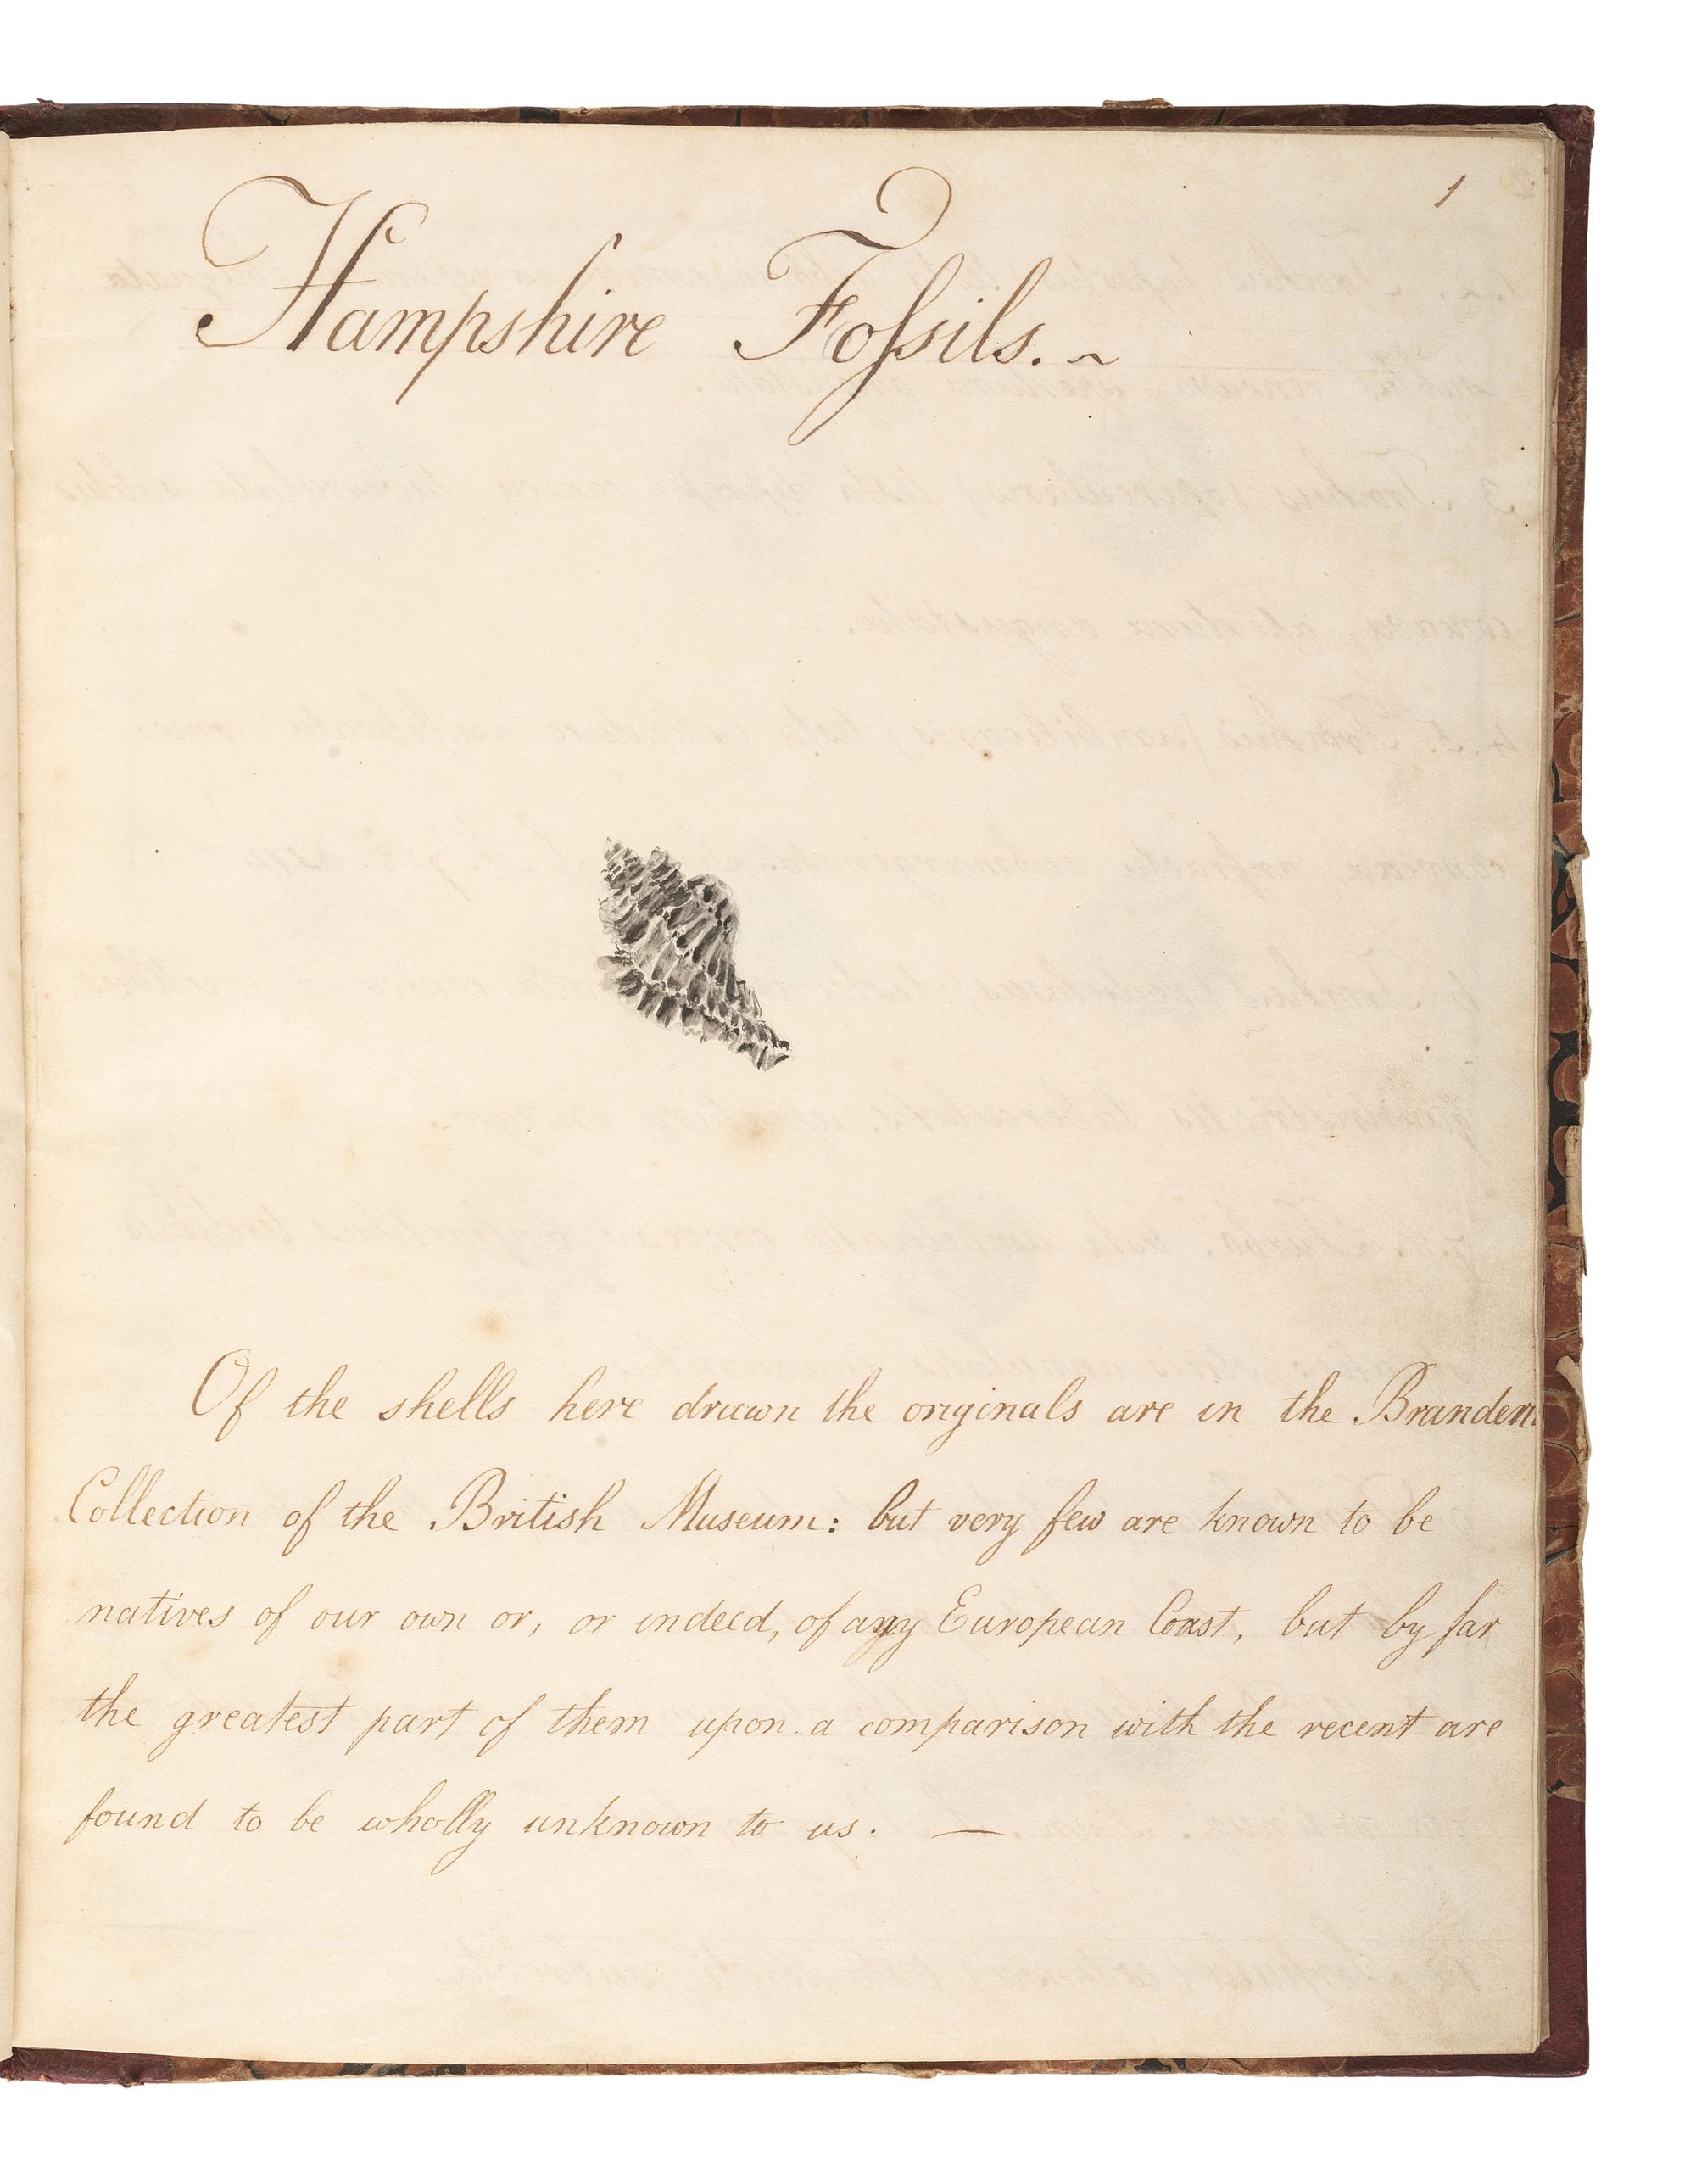 1
Hampshire Foſsils. ~
Of the shells here drawn the originals are in the Branden.
Collection of the British Museum: but very few are known to be
natives of our own or, or indeed, of any European Coast, but by far
the greatest part of them upon a comparison with the recent are
found to be wholly unknown to us. —